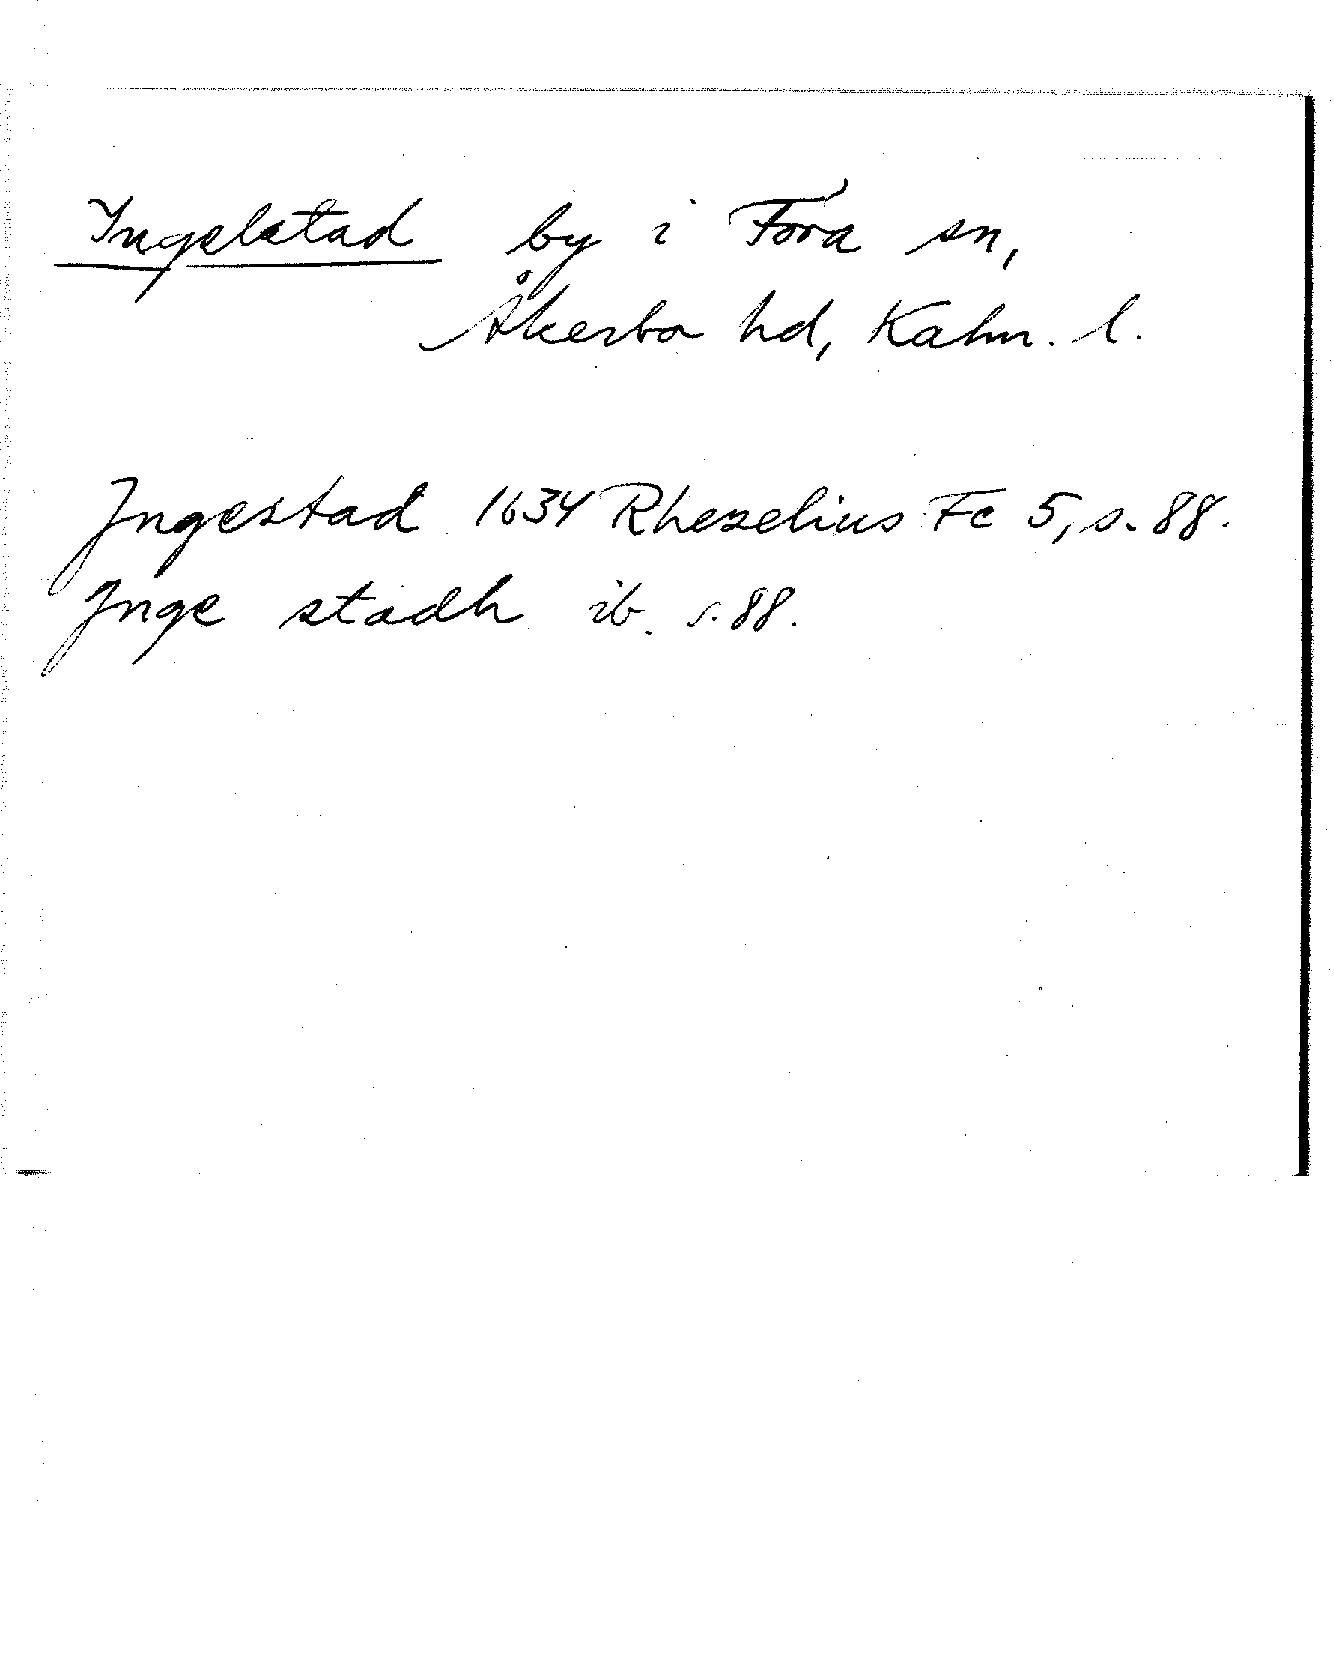 Ingelstad by i Föra sn,
Åkerbo hd, Kalm. l.
Jngestad 1634 Rhezelius Fc 5, s. 88.
Jnge stadh ib. s. 88.